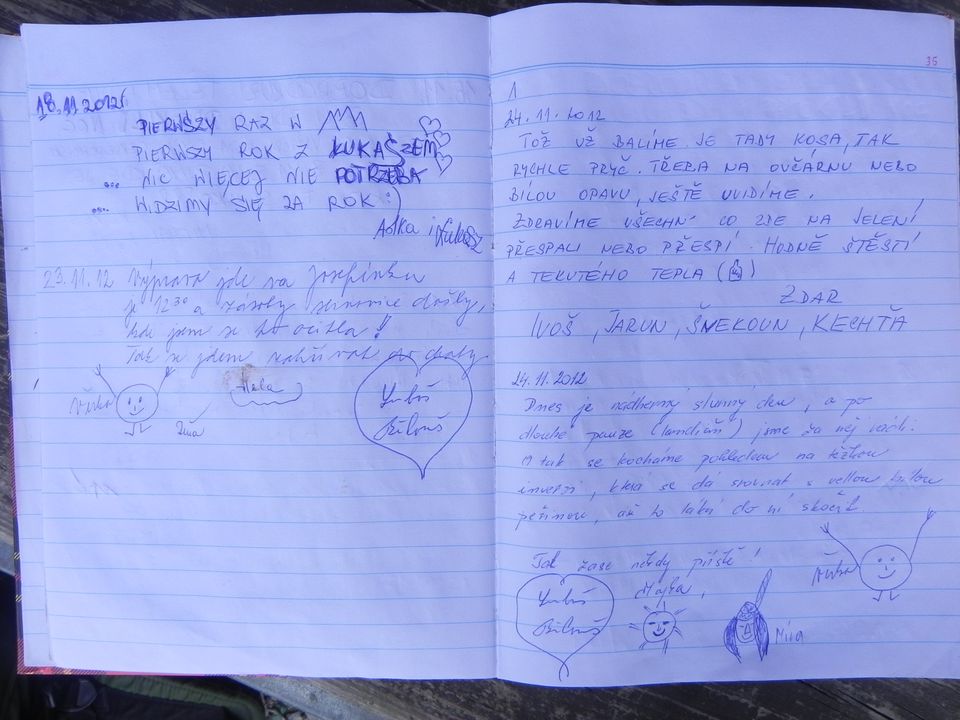 18.11.2012
PIERWSZY RAZ W
PIERWSZY ROK Z ŁUKASZEM
... NIC WIĘCEJ NIE POTRZEBA
.... WIDZIMY SIĘ ZA ROK :)
i Łukasz
23.11.12 Výprava jde na Josefínku
je 12³⁰ a zásoby slivovice došly,
kde jsem se to ocitla!
Tak a jdem do chaty
Hela
Luboš
35
1
24.11.2012
TOŽ UŽ BALÍME JE TADY KOSA, TAK
RYCHLE PRYČ. TŘEBA NA OVČÁRNU NEBO
BÍLOU OPAVU, JEŠTĚ UVIDÍME.
ZDRAVÍME VŠECHNY CO ZDE NA JELENÍ
PŘESPALI NEBO PŘESPÍ. HODNĚ ŠTĚSTÍ
A TEKUTÉHO TEPLA ( )
ZDAR
IVOŠ, JARUN, ŠNEKOUN, KECHŤA
24.11.2012
Dnes je nádherný slunný den, a po
dlouhé pauze ( ) jsme za něj rádi.
A tak se kocháme pohledem na těžkou
inverzi, která se dá srovnat s velkou bílou
peřinou, až to láká do ní skočit.
Tak zase někdy příště!
Majka,
Luboš
Míra